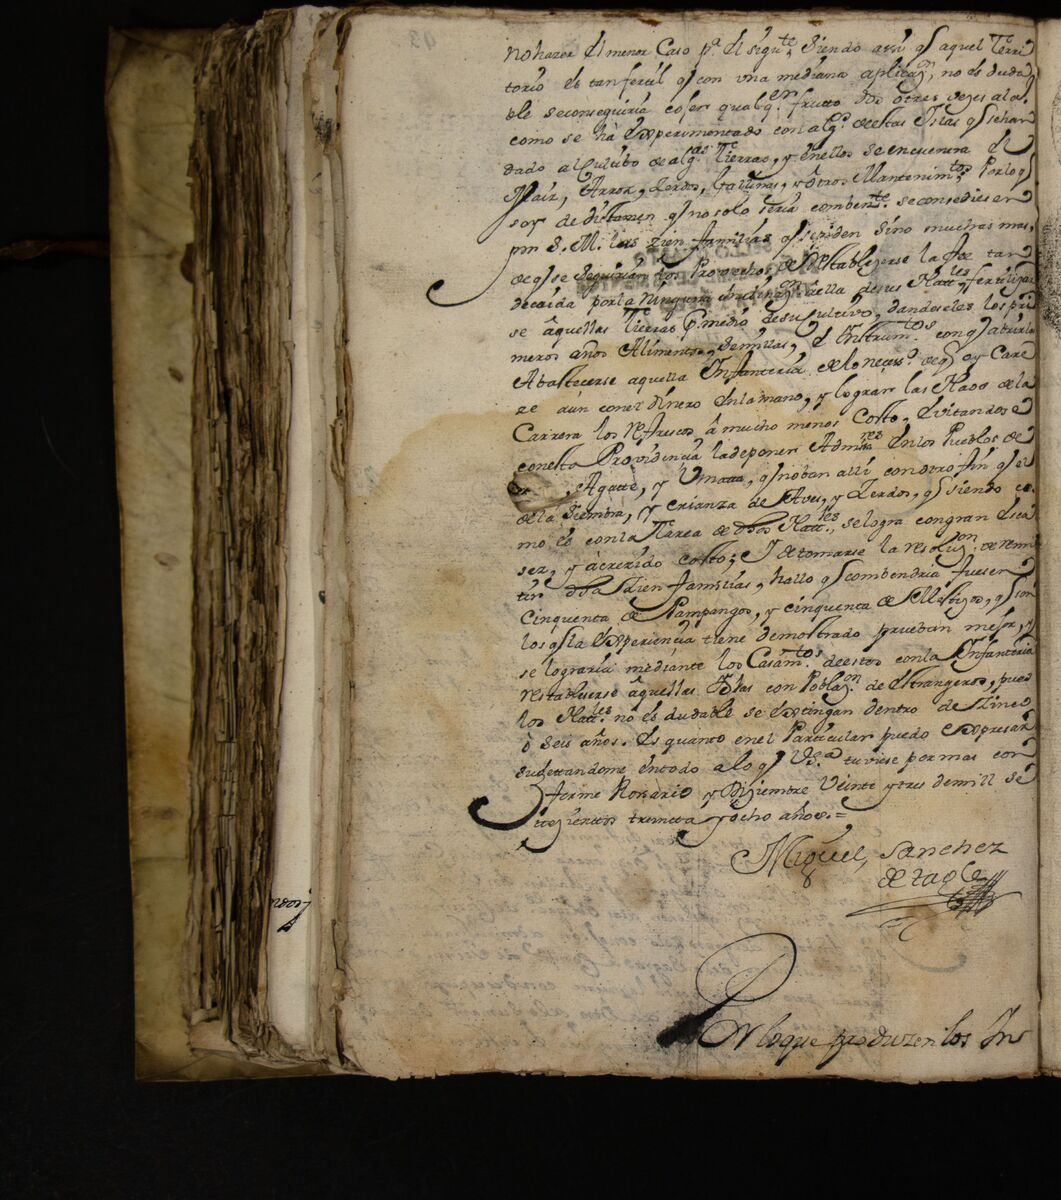 no hazer el menor Caso p.ª el sigu.te Siendo assi q̃ aquel Terri
torio es tan fertil q̃ con una mediana aplicaz.on, no es duda
ble se conseguiria coser qualq.er frutto dos o tres vezes al a.º
como se hà experimentado con alg.s de estas Islas q̃ se han
dado al Cultibo de alg.as Tierras, y en ellos se encuentra el
Maiz, Arroz, Zerdos, Gallinas, y otros Mantenim.tos Por lo q̃
soy de dictamen q̃ no solo seria combente. se consediesen
por S. M. las zien familias q̃ se piden sino muchas mas,
de q̃ se seguirian los Provechos de Establezerse la fee tan
decaida por la ninguna Estrella de sus Nat.les fertilizar
se âquellas Tierras p.r medio de su Cultivo, dandoseles los pri
meros años Alimentos, Semillas, è Instrum.tos con q̃ abrirla
Abastecerse aquella Infanteria de lo necess.º de q̃ oy Care
ze aún con el dinero en la mano, y lograr las Naos de la
Carrera los refrescos â mucho menos Costo, evitandose
con esta Providencia la de poner Admin.res en los Pueblos de
Agatte, y Umata, q̃ no ban alli con otro fin q̃ el
de la siembra, y crianza de Aves, y Zerdos, q̃ siendo co
mo es con la Tarea de dhos Nat.les, se logra con gran esca
sez, y à crecido costo; Y de tomarse la resoluz.on de remi
tir dhas zien familias, hallo q̃ combendria fuesen
Cinquenta de Pampangos, y cinquenta de Mestizos, q̃ son
los q̃ la experiencia tiene demostrado prueban mejor, y
se lograria mediante los Casam.tos de estos con la Infanteria
restablecerse âquellas Islas con Poblaz.on de Estrangeros, pues
los Nat.les no es dudable se extingan dentro de Zinco
ò seis años. Es quanto en el Particular puedo expresar
sujettandome en todo a lo q̃ V.S.ª tuviese por mas con
forme Rosario y Diziembre Veinte y tres de mill se
tezientos treinta y ocho años.=
Miguel Sanchez
de tagle
En lo que produzen los In